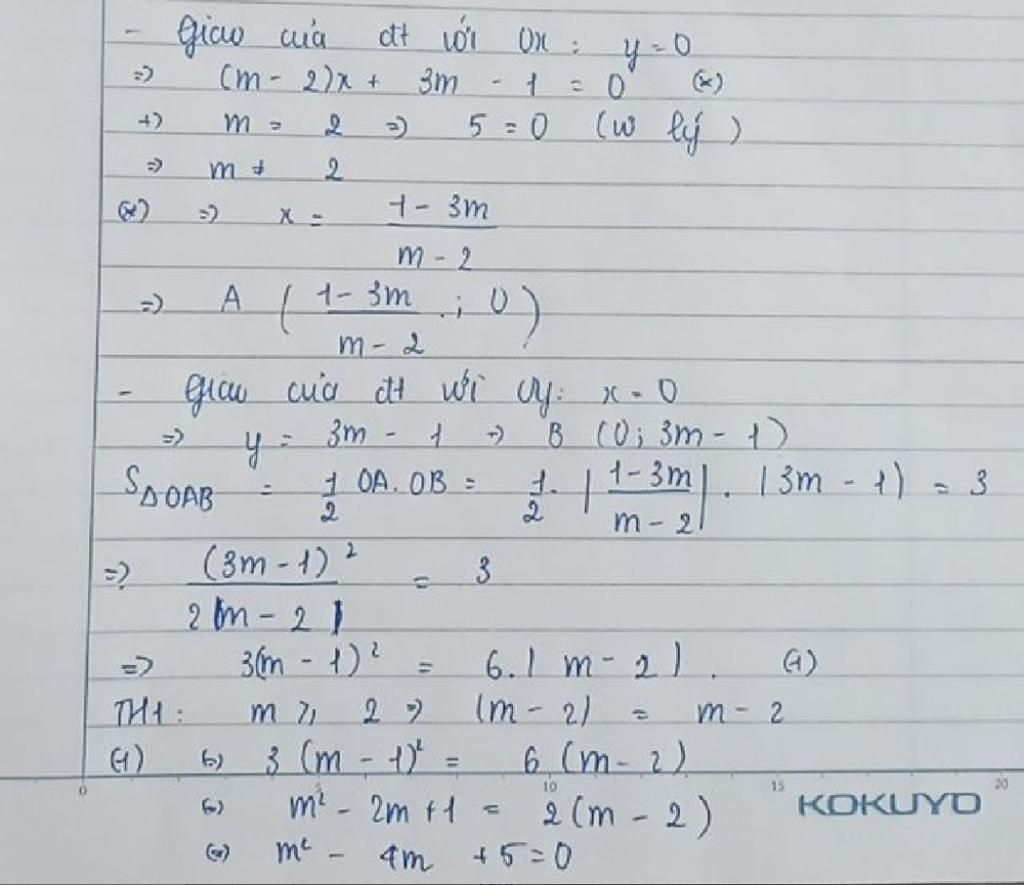 - Giao của đt với Ox : y = 0
=> (m - 2)x + 3m - 1 = 0 (*)
+) m = 2 => 5 = 0 (vô lý)
=> m ≠ 2
(*) => x = \frac{1 - 3m}{m - 2}
=> A ( \frac{1 - 3m}{m - 2} ; 0 )
- Giao của đt với Oy: x = 0
=> y = 3m - 1 => B (0; 3m - 1)
S_{ΔOAB} = \frac{1}{2} OA. OB = \frac{1}{2}. |\frac{1 - 3m}{m - 2}| . |3m - 1| = 3
=> \frac{(3m - 1)^2}{2|m - 2|} = 3
=> 3(m - 1)^2 = 6.| m - 2| . (1)
TH1: m ≥ 2 => |m - 2| = m - 2
(1) (=) 3 (m - 1)^2 = 6 (m - 2)
0 5 10 15 20
KOKUYO
(=) m^2 - 2m + 1 = 2(m - 2)
(=) m^2 - 4m + 5 = 0